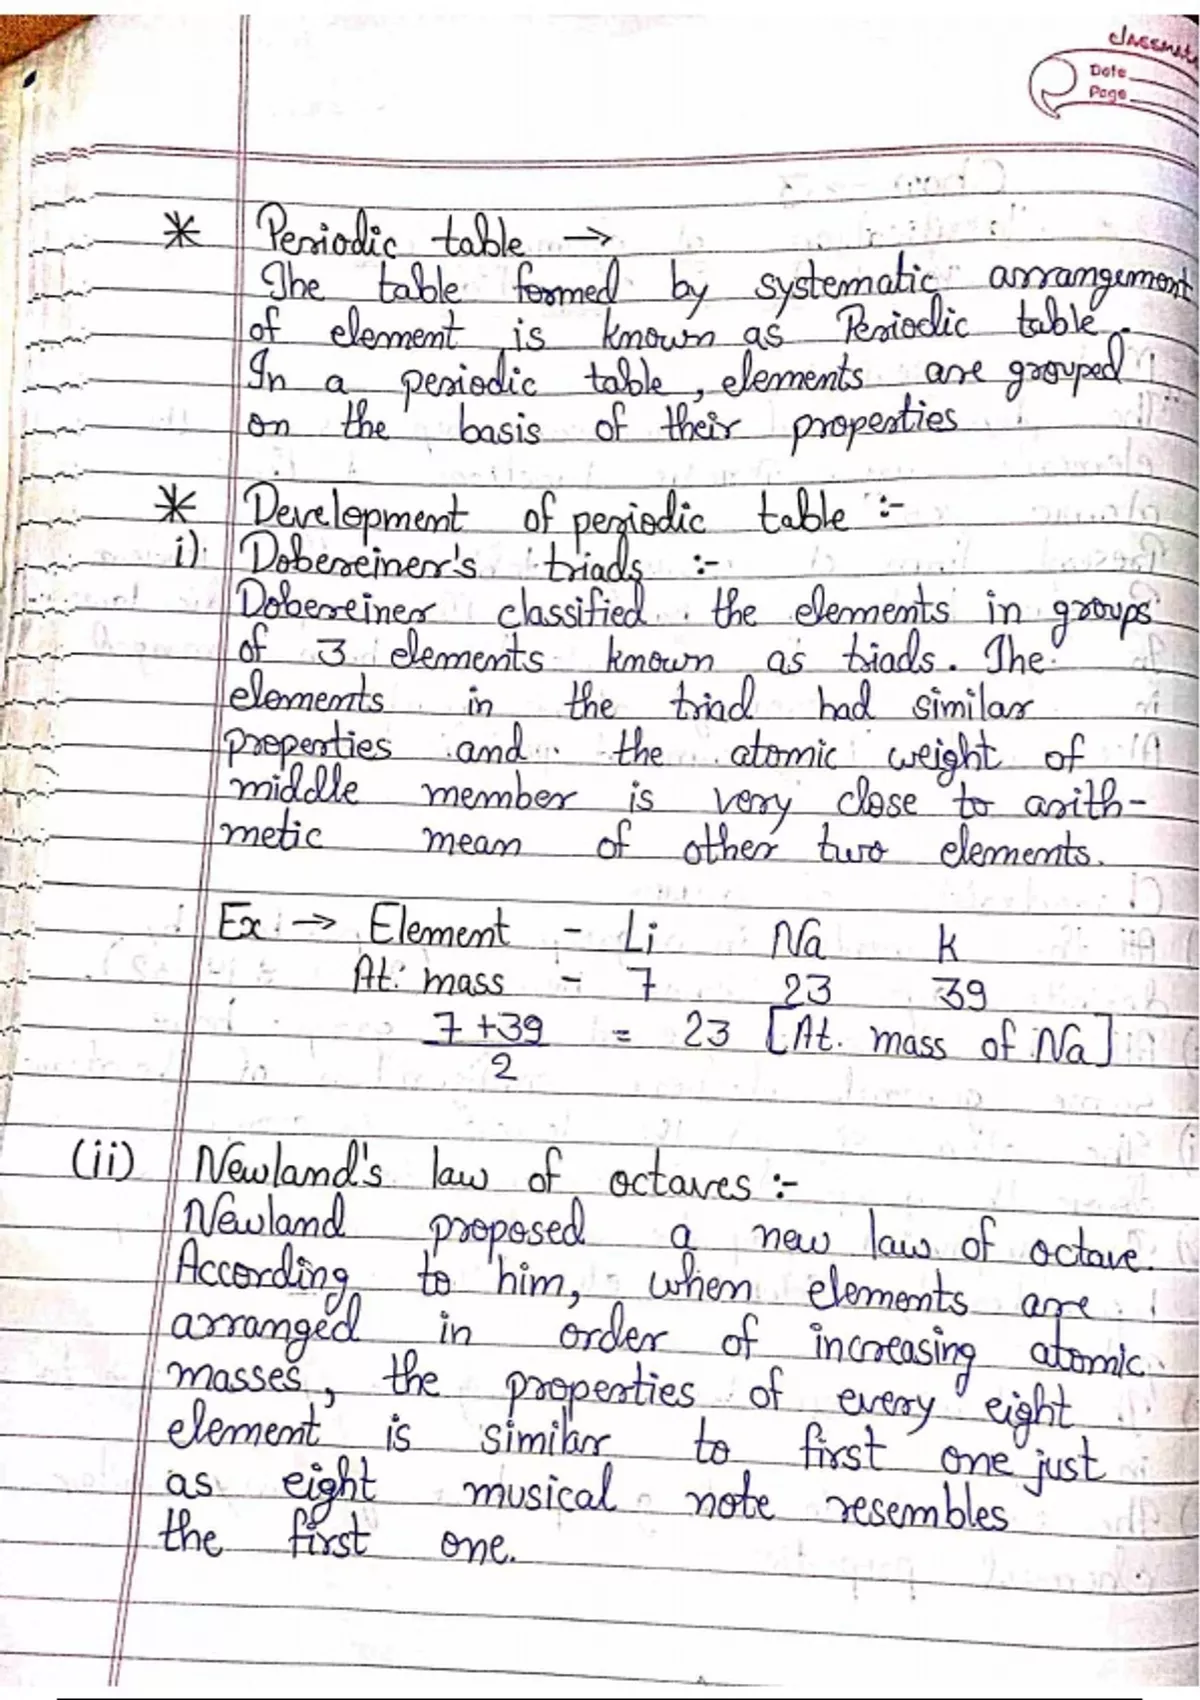 classmate
Date
Page
* Periodic table →
The table formed by systematic arrangement
of element is known as Periodic table.
In a periodic table, elements are grouped
on the basis of their properties
* Development of periodic table :-
i) Dobereiner's triads :-
Dobereiner classified the elements in groups
of 3 elements known as triads. The
elements in the triad had similar
properties and the atomic weight of
middle member is very close to arith-
metic mean of other two elements.
Ex → Element - Li Na K
At. mass - 7 23 39
7 + 39 = 23 [At. mass of Na]
2
(ii) Newland's law of octaves :-
Newland proposed a new law of octave.
According to him, when elements are
arranged in order of increasing atomic
masses, the properties of every eight
element is similar to first one just
as eight musical note resembles
the first one.